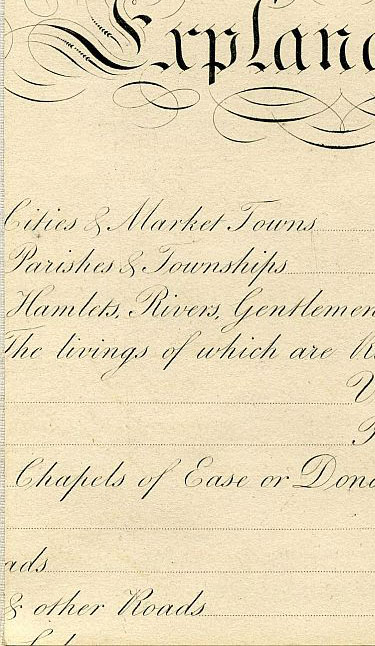 Explan
Cities & Market Towns
Parishes & Townships
Hamlets, Rivers, Gentlemen
The livings of which are R
V
P
Chapels of Ease or Don
ads
& other Roads